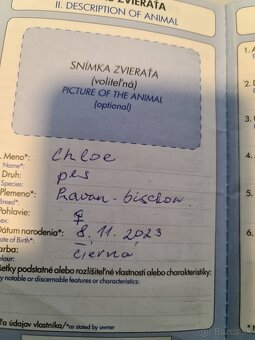 ZVIERAŤA
II. DESCRIPTION OF ANIMAL
SNÍMKA ZVIERAŤA
(voliteľná)
PICTURE OF THE ANIMAL
(optional)
Meno*: Chloe
Name*:
Druh: pes
Species:
Plemeno*: Havan-bischon
Breed*:
Pohlavie: ♀
Sex:
Dátum narodenia*: 8. 11. 2023
Date of Birth*:
Farba: čierna
Colour:
šetky podstatné alebo rozlíšiteľné vlastnosti alebo charakteristiky:
y notable or discernable features or characteristics:
ľa údajov vlastníka/*as stated by owner